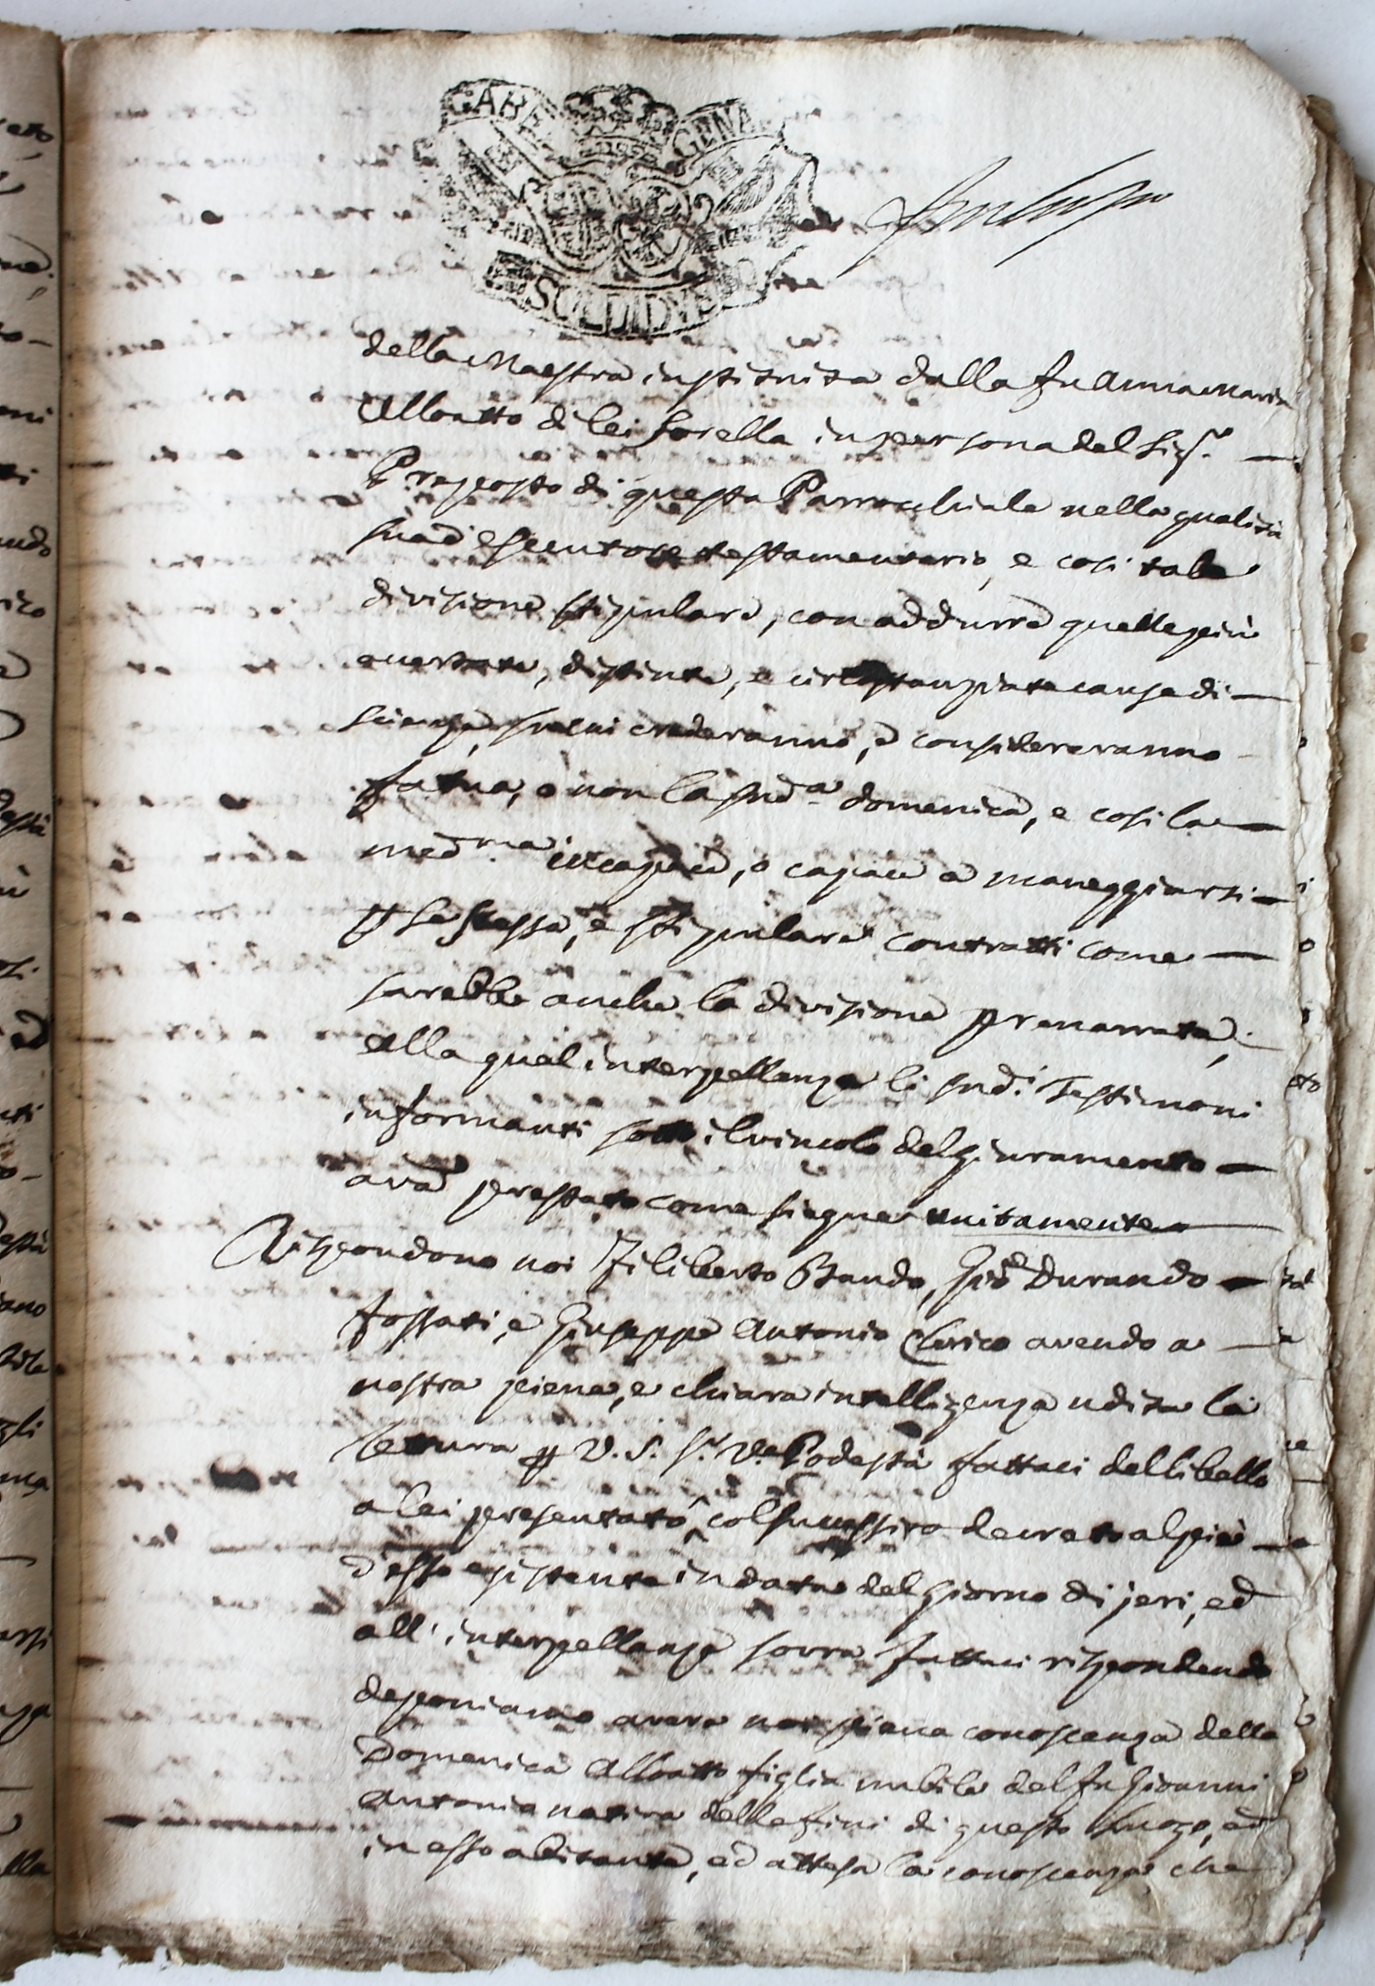 GABE GENE
SOLDI DVE
della Maestra instituita dalla fu Anna Maria
Alloatto di lei sorella in persona del Sig.r
Preposto di questa Parrochiale nella qualità
sua d'esecutore testamentario, e così tale
divisione stipulare, con addurre quelle più
accertate, distinte, e circostanziate cause di
scienza, per cui crederanno, e consilereranno
fatua, o non la sud.a Domenica, e così la
med.ma incapace, o capace a maneggiarsi
per se stessa, e stipulare contratti come
sarebbe anche la divisione prenarrata;
Alla qual interpellanza li sud.i Testimoni
informanti sotto il vincolo del giuramento
avad prestato come siegue unitamente
Rispondono noi Filiberto Bando, Gioː Durando
fossati, e Giuseppe Antonio Clerico avendo a
nostra piena, e chiara intelligenza udita la
lettura per V. S. S.r V. Podestà fattaci del libello
a lei presentato, col successivo decreto al piè
d'esso esistente in data del giorno di jeri, ed
all'interpellanza sovra fattaci rispondendo
deponiamo avere noi piena conoscenza della
Domenica Alloatto figlia nubile del fu Giovanni
Antonio nativa delle fini di questo luogo, ed
in esso abitante, ed attesa la conoscenza che